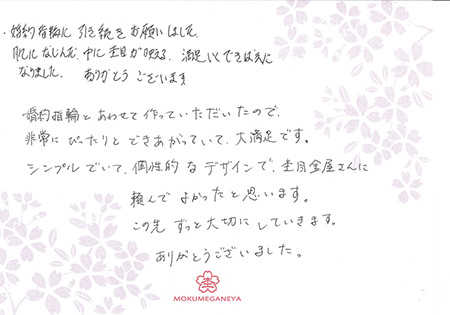 ・婚約指輪に引き続きお願いしました。
肌になじんで、中に杢目が映える、満足いくできばえに
なりました。ありがとうございます
婚約指輪とあわせて作っていただいたので、
非常にぴったりとできあがっていて、大満足です。
シンプルでいて、個性的なデザインで、杢目金屋さんに
頼んでよかったと思います。
この先ずっと大切にしていきます。
ありがとうございました。
MOKUMEGANEYA